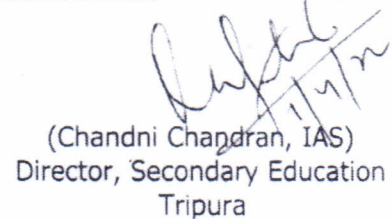 (Chandni Chandran, IAS)
Director, Secondary Education
Tripura